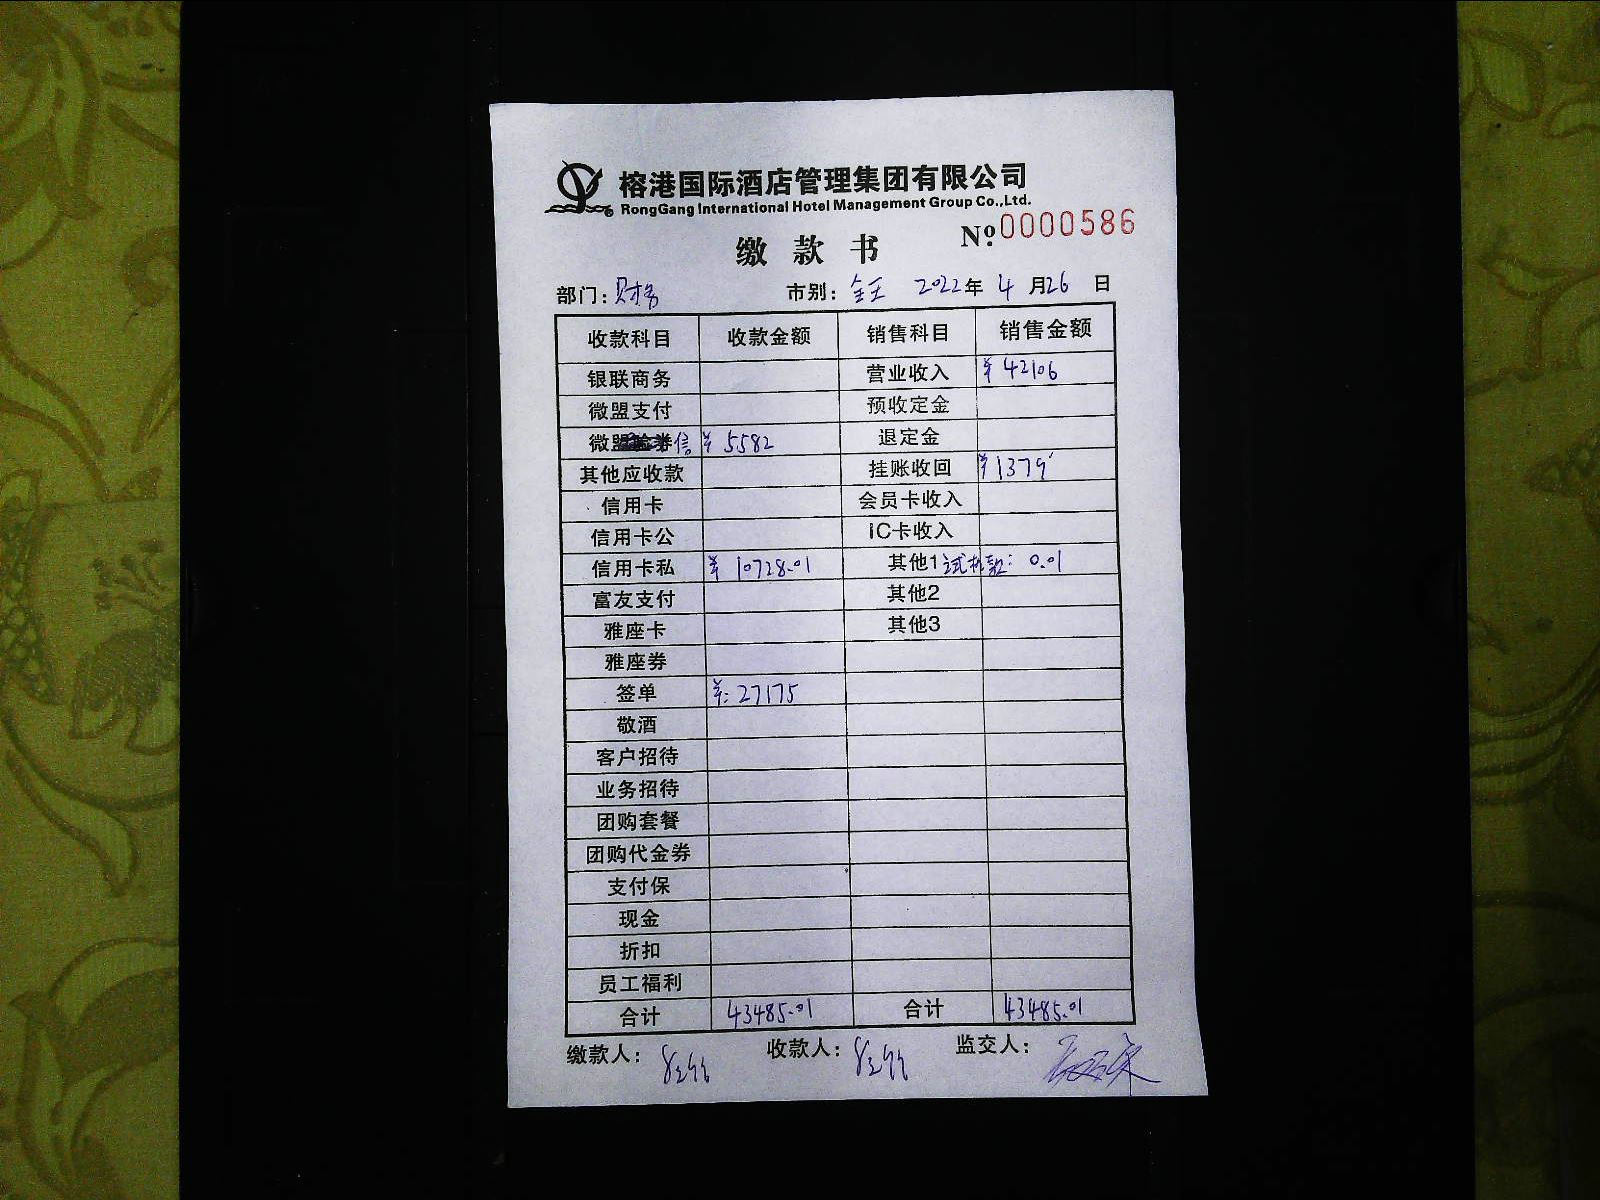 榕港国际酒店管理集团有限公司
RongGang International Hotel Management Group Co.,Ltd.
缴款书 №:0000586
部门:财务 市别:全天 2022年4月26日
收款科目 收款金额 销售科目 销售金额
银联商务 营业收入 ¥42106
微盟支付 预收定金
微信 ¥5582 退定金
其他应收款 挂账收回 ¥1379
信用卡 会员卡收入
信用卡公 IC卡收入
信用卡私 ¥10728.01 其他1 试机款: 0.01
富友支付 其他2
雅座卡 其他3
雅座券
签单 ¥:27175
敬酒
客户招待
业务招待
团购套餐
团购代金券
支付保
现金
折扣
员工福利
合计 43485.01 合计 43485.01
缴款人: 收款人: 监交人: